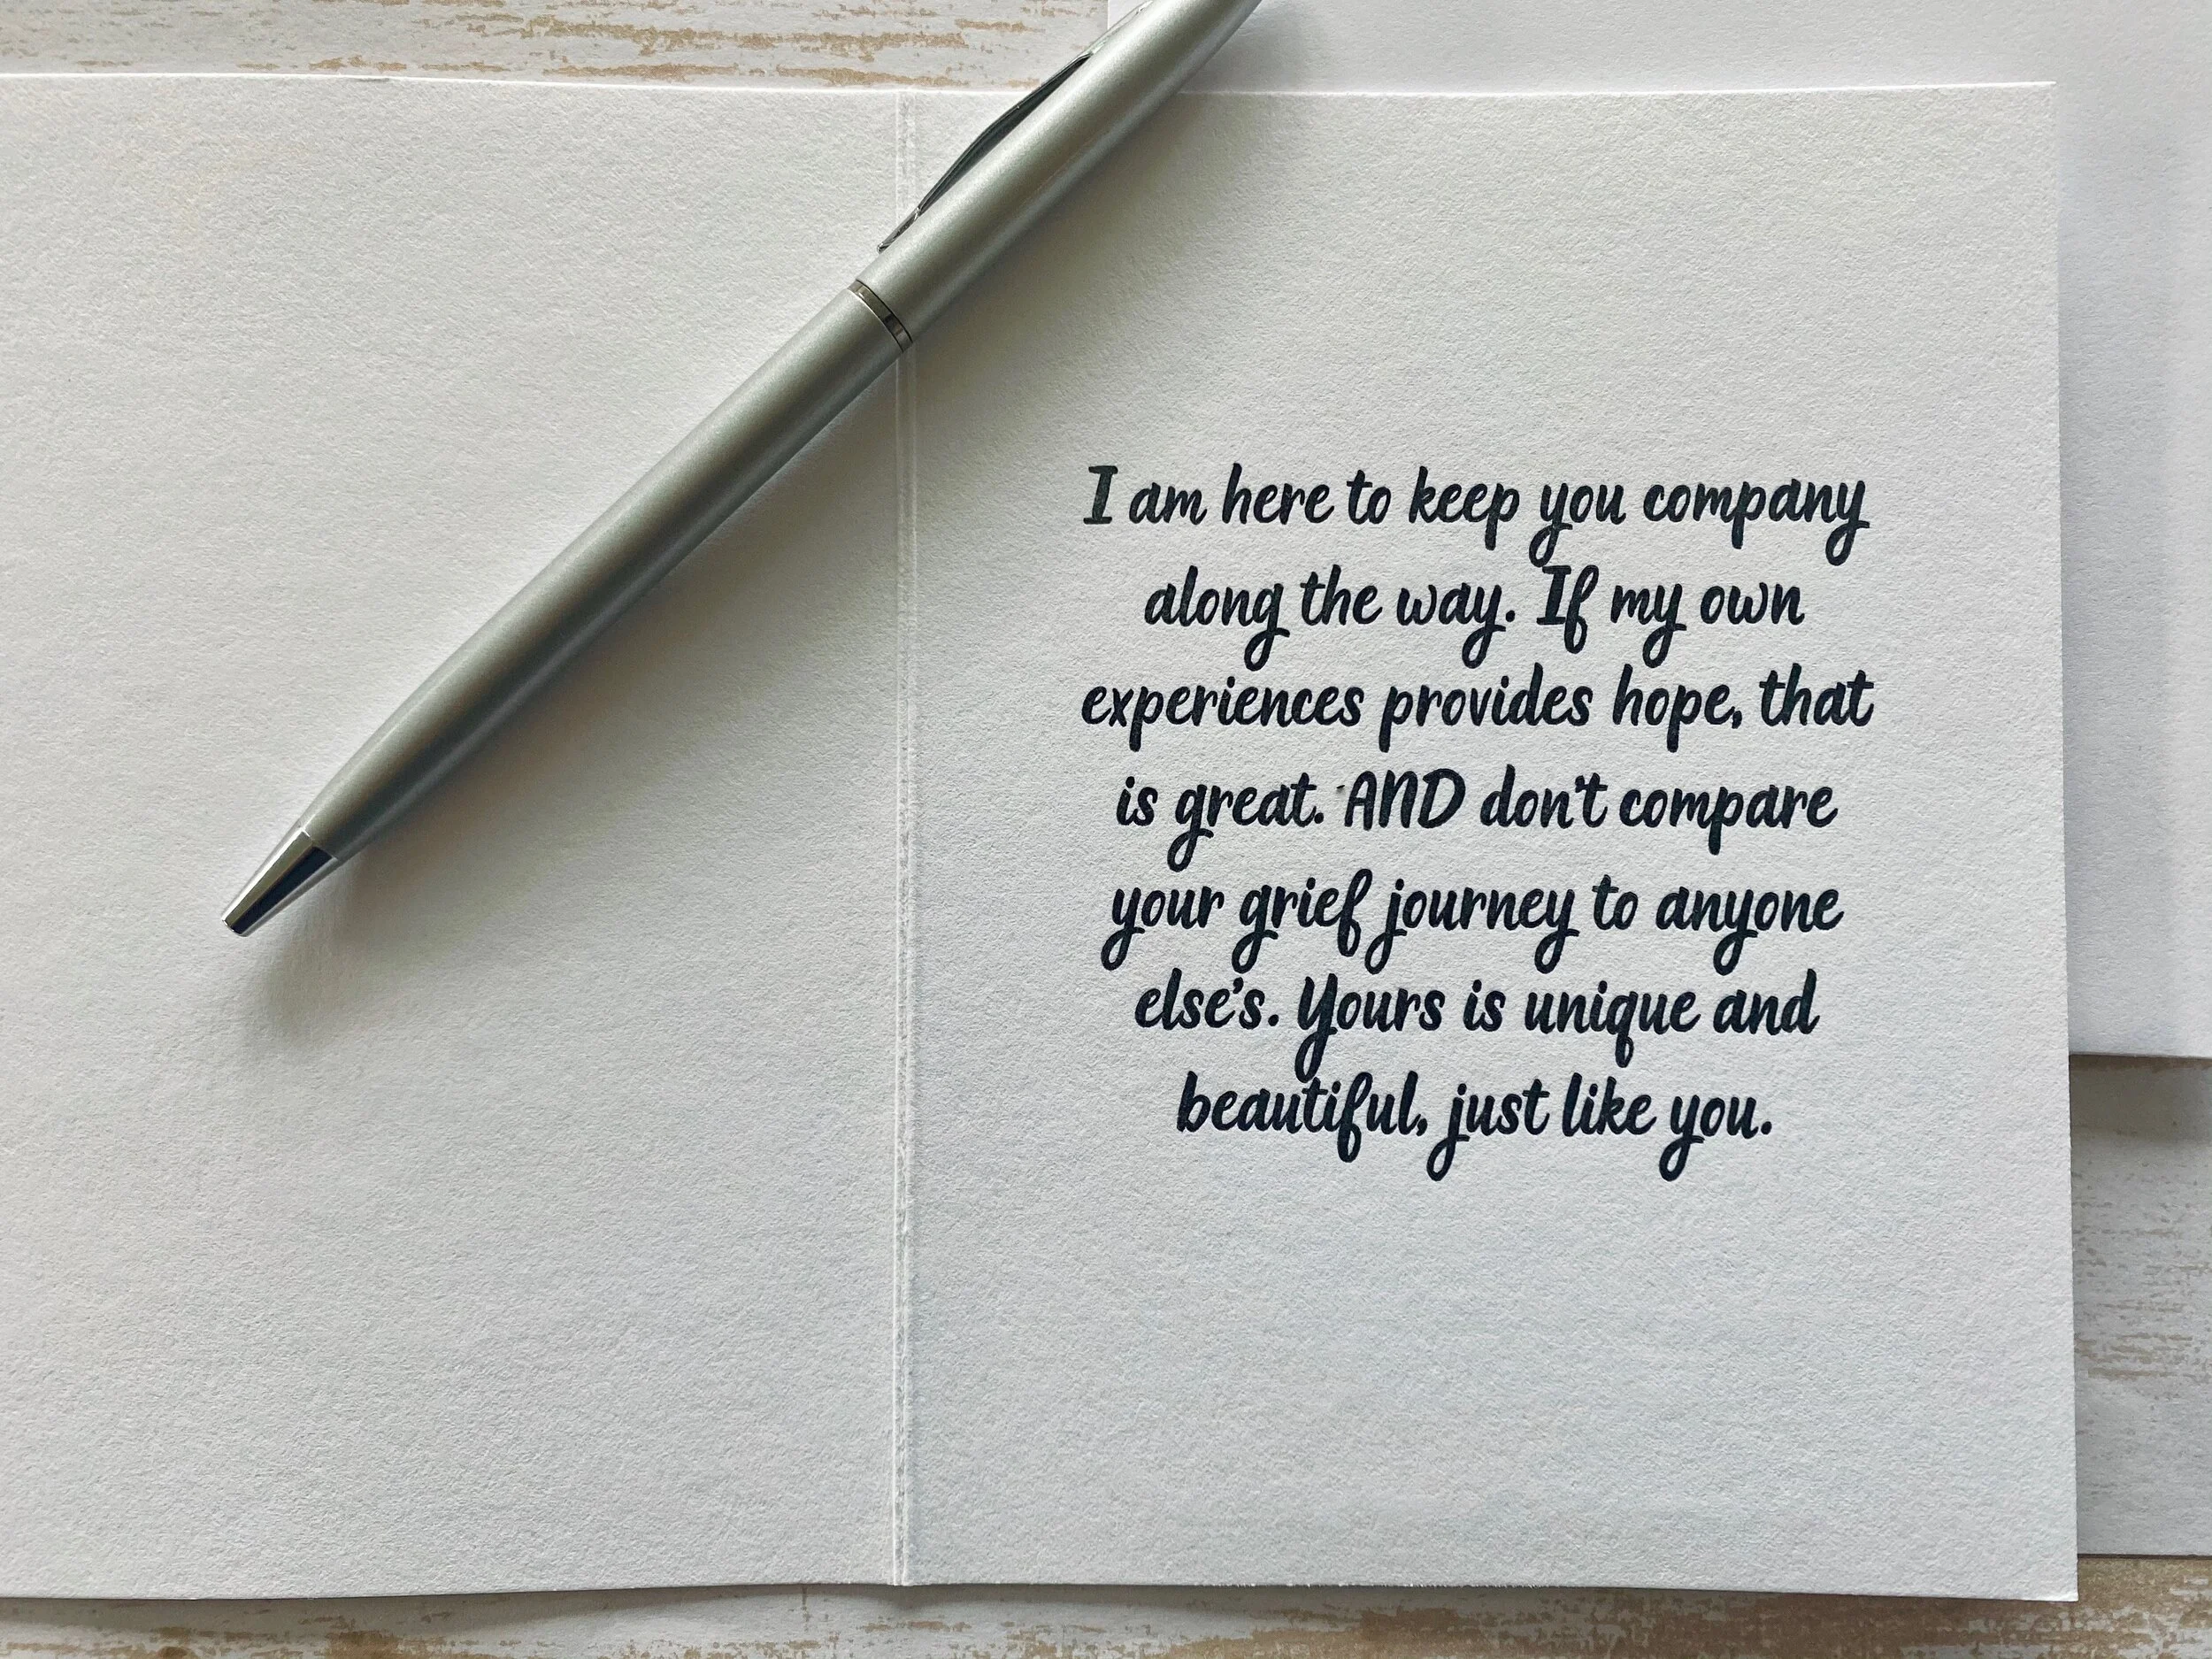 I am here to keep you company
along the way. If my own
experiences provides hope, that
is great. AND don't compare
your grief journey to anyone
else's. Yours is unique and
beautiful, just like you.